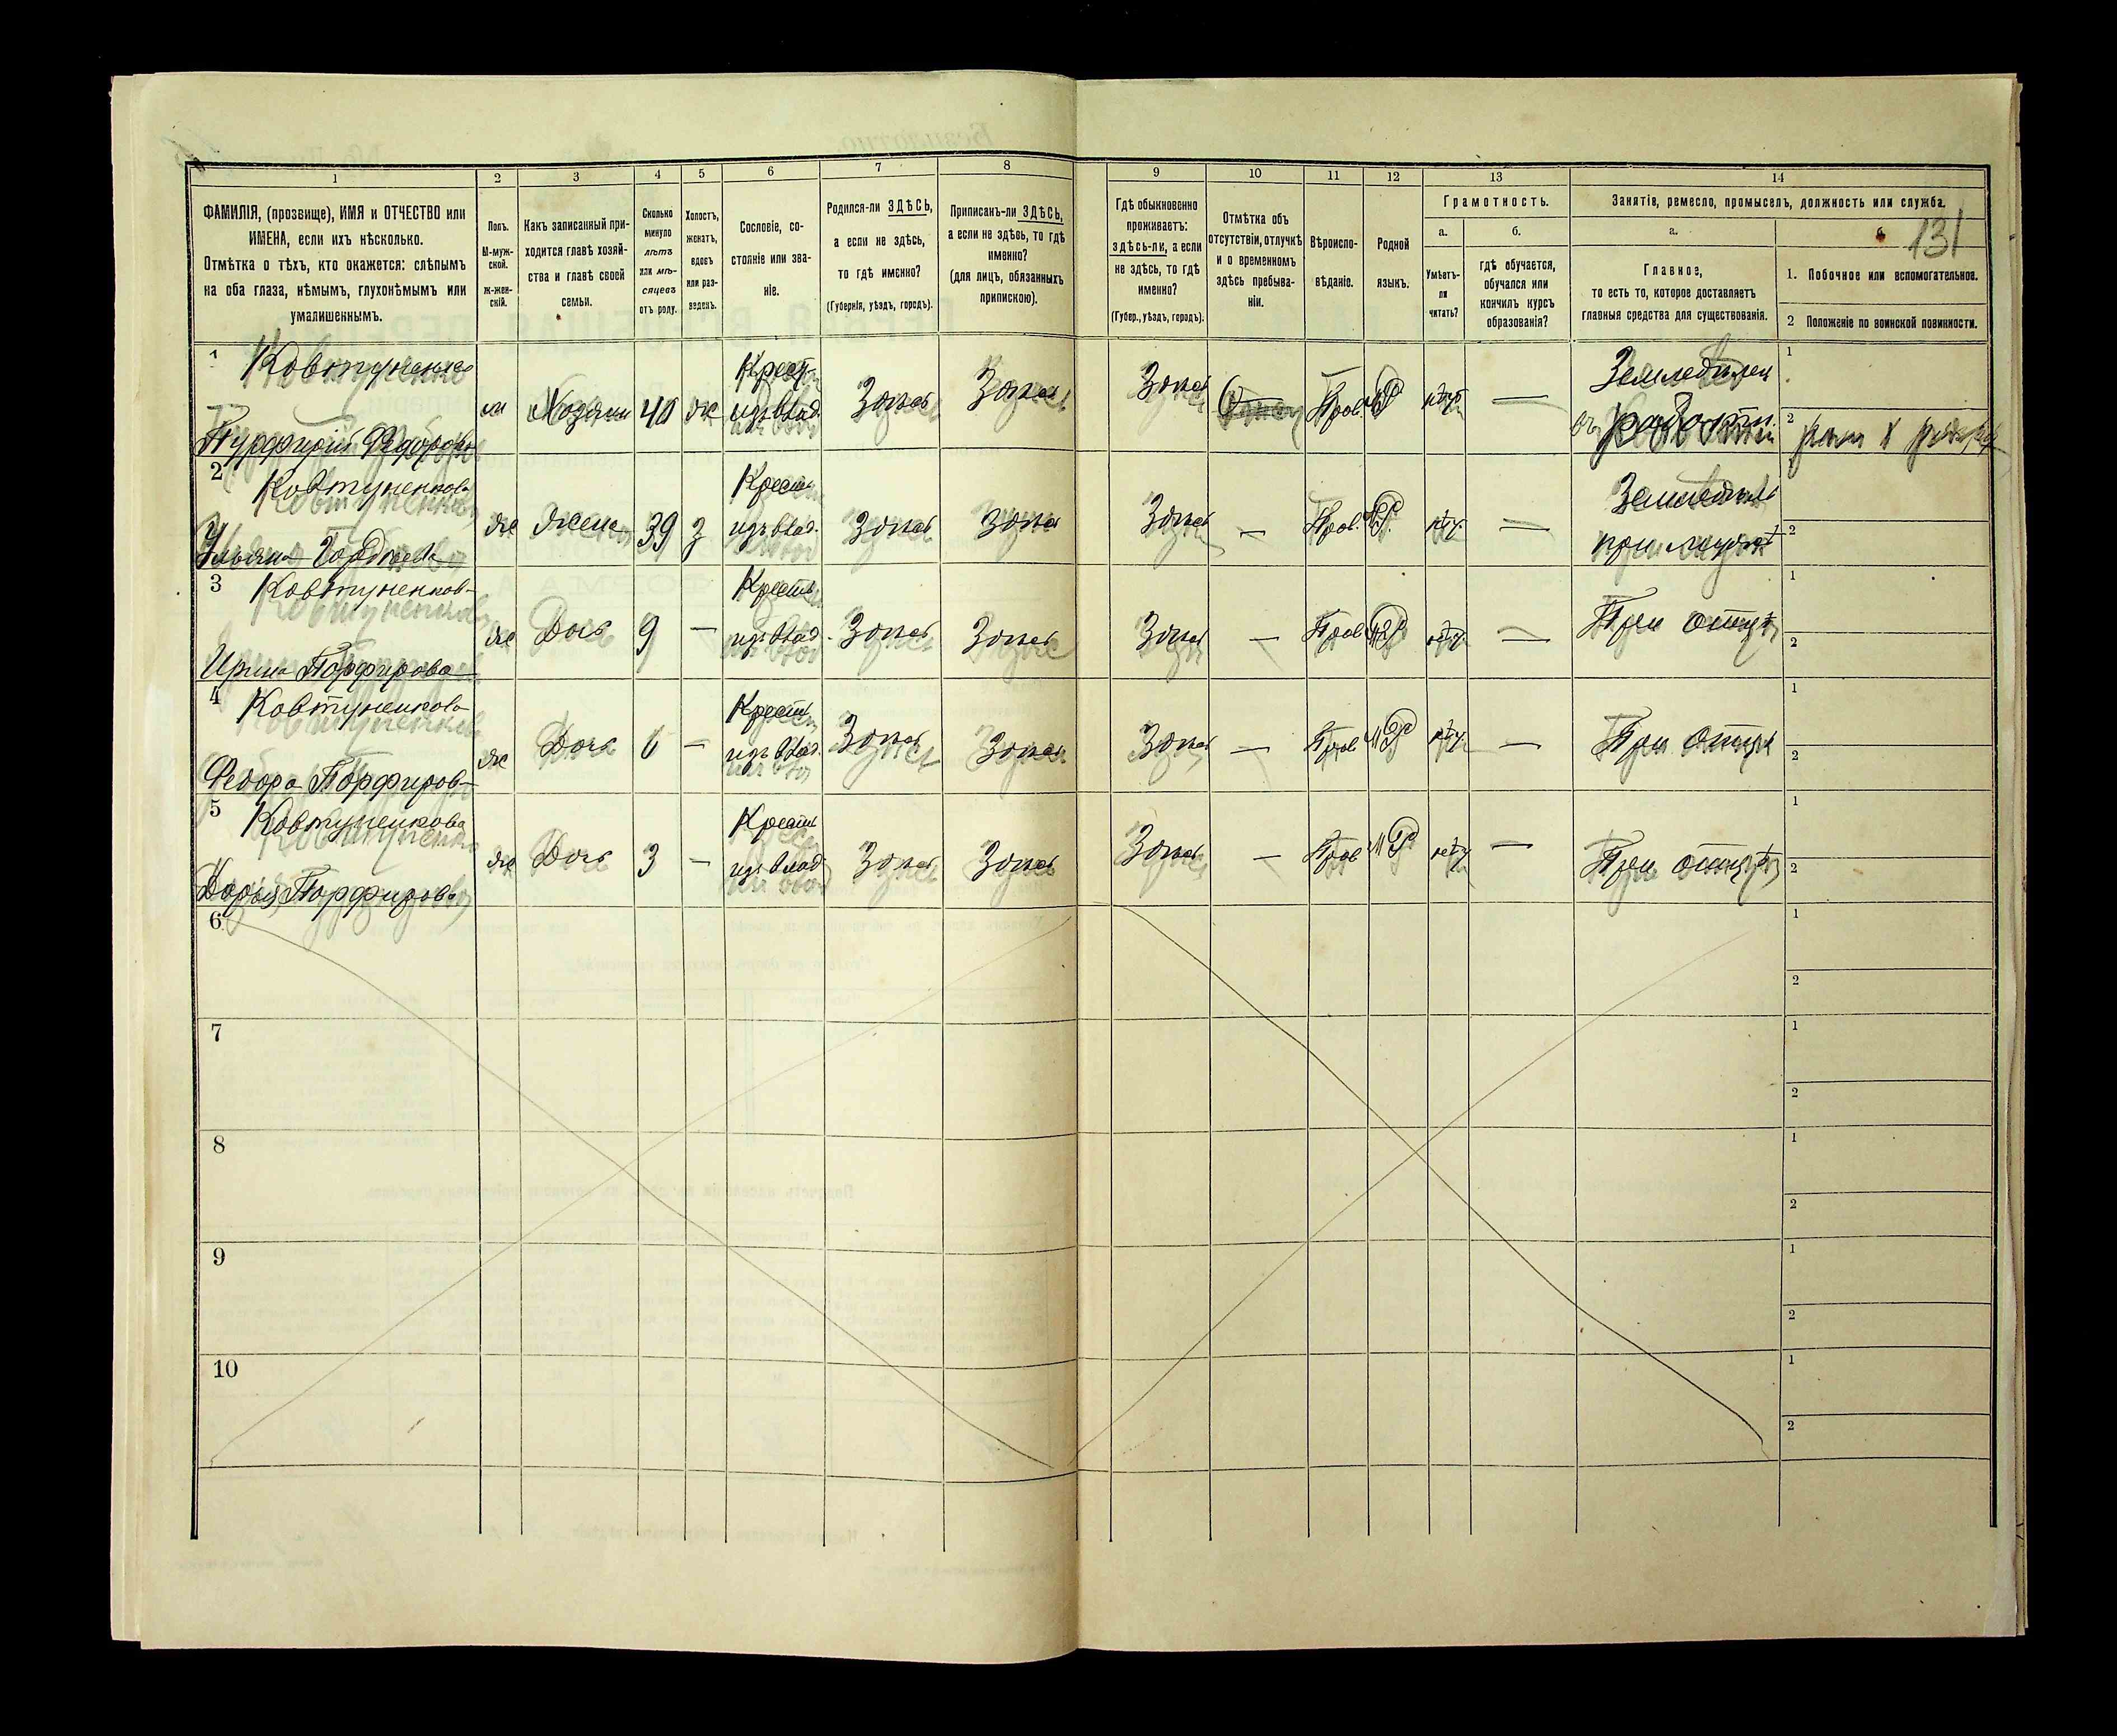 1 2 3 4 5 6 7 8 9 10 11 12 13 14
ФАМИЛІЯ, (прозвище), ИМЯ и ОТЧЕСТВО или
ИМЕНА, если ихъ нѣсколько.
Отмѣтка о тѣхъ, кто окажется: слѣпымъ
на оба глаза, нѣмымъ, глухонѣмымъ или
умалишеннымъ.
Полъ.
М-муж-
ской.
Ж-жен-
скій.
Какъ записанный при-
ходится главѣ хозяй-
ства и главѣ своей
семьи.
Сколько
минуло
лѣтъ
или мѣ-
сяцевъ
отъ роду.
Холостъ,
женатъ,
вдовъ
или раз-
веденъ.
Сословіе, со-
стояніе или зва-
ніе.
Родился-ли ЗДѢСЬ,
а если не здѣсь,
то гдѣ именно?
(Губернія, уѣздъ, городъ).
Приписанъ-ли ЗДѢСЬ,
а если не здѣсь, то гдѣ
именно?
(для лицъ, обязанныхъ
припискою).
Гдѣ обыкновенно
проживаетъ:
здѣсь-ли, а если
не здѣсь, то гдѣ
именно?
(Губер., уѣздъ, городъ).
Отмѣтка объ
отсутствіи, отлучкѣ
и о временномъ
здѣсь пребыва-
ніи.
Вѣроиспо-
вѣданіе.
Родной
языкъ.
Грамотность.
а.
Умѣетъ-
ли
читать?
б.
гдѣ обучается,
обучался или
кончилъ курсъ
образованія?
Занятія, ремесло, промыселъ, должность или служба.
131
а.
Главное,
то есть то, которое доставляетъ
главныя средства для существованія.
б
1. Побочное или вспомогательное.
2 Положеніе по воинской повинности.
1 Ковтуненко Крест. Земледѣлец 1
м Хозяин 40 ж изъ влад. Здѣсь Здѣсь Здѣсь Прав. МР нѣтъ — 2
Федоров
2 Ковтуненкова Крестьян
Ульяна Гордѣева же жена 39 з изъ влад. Здѣсь Здѣсь Здѣсь — Прав. МР. нѣтъ — при мужѣ 2
3 Ковтуненкова Крестьян 1
же Дочь 9 — изъ влад. Здѣсь Здѣсь Здѣсь — Прав МР нѣтъ — При отцѣ 2
Ирина Порфирова
4 Ковтуненкова Крестьян 1
же Дочь 6 — изъ влад. Здѣсь Здѣсь Здѣсь — Прав МР нѣтъ — При отцѣ 2
Федора Порфирова
5 Ковтуненкова Крестьян 1
же Дочь 3 — изъ влад Здѣсь Здѣсь Здѣсь — Прав МР нѣтъ — При отцѣ 2
Дарья Порфирова
6 1
2
7 1
2
8 1
2
9 1
2
10 1
2